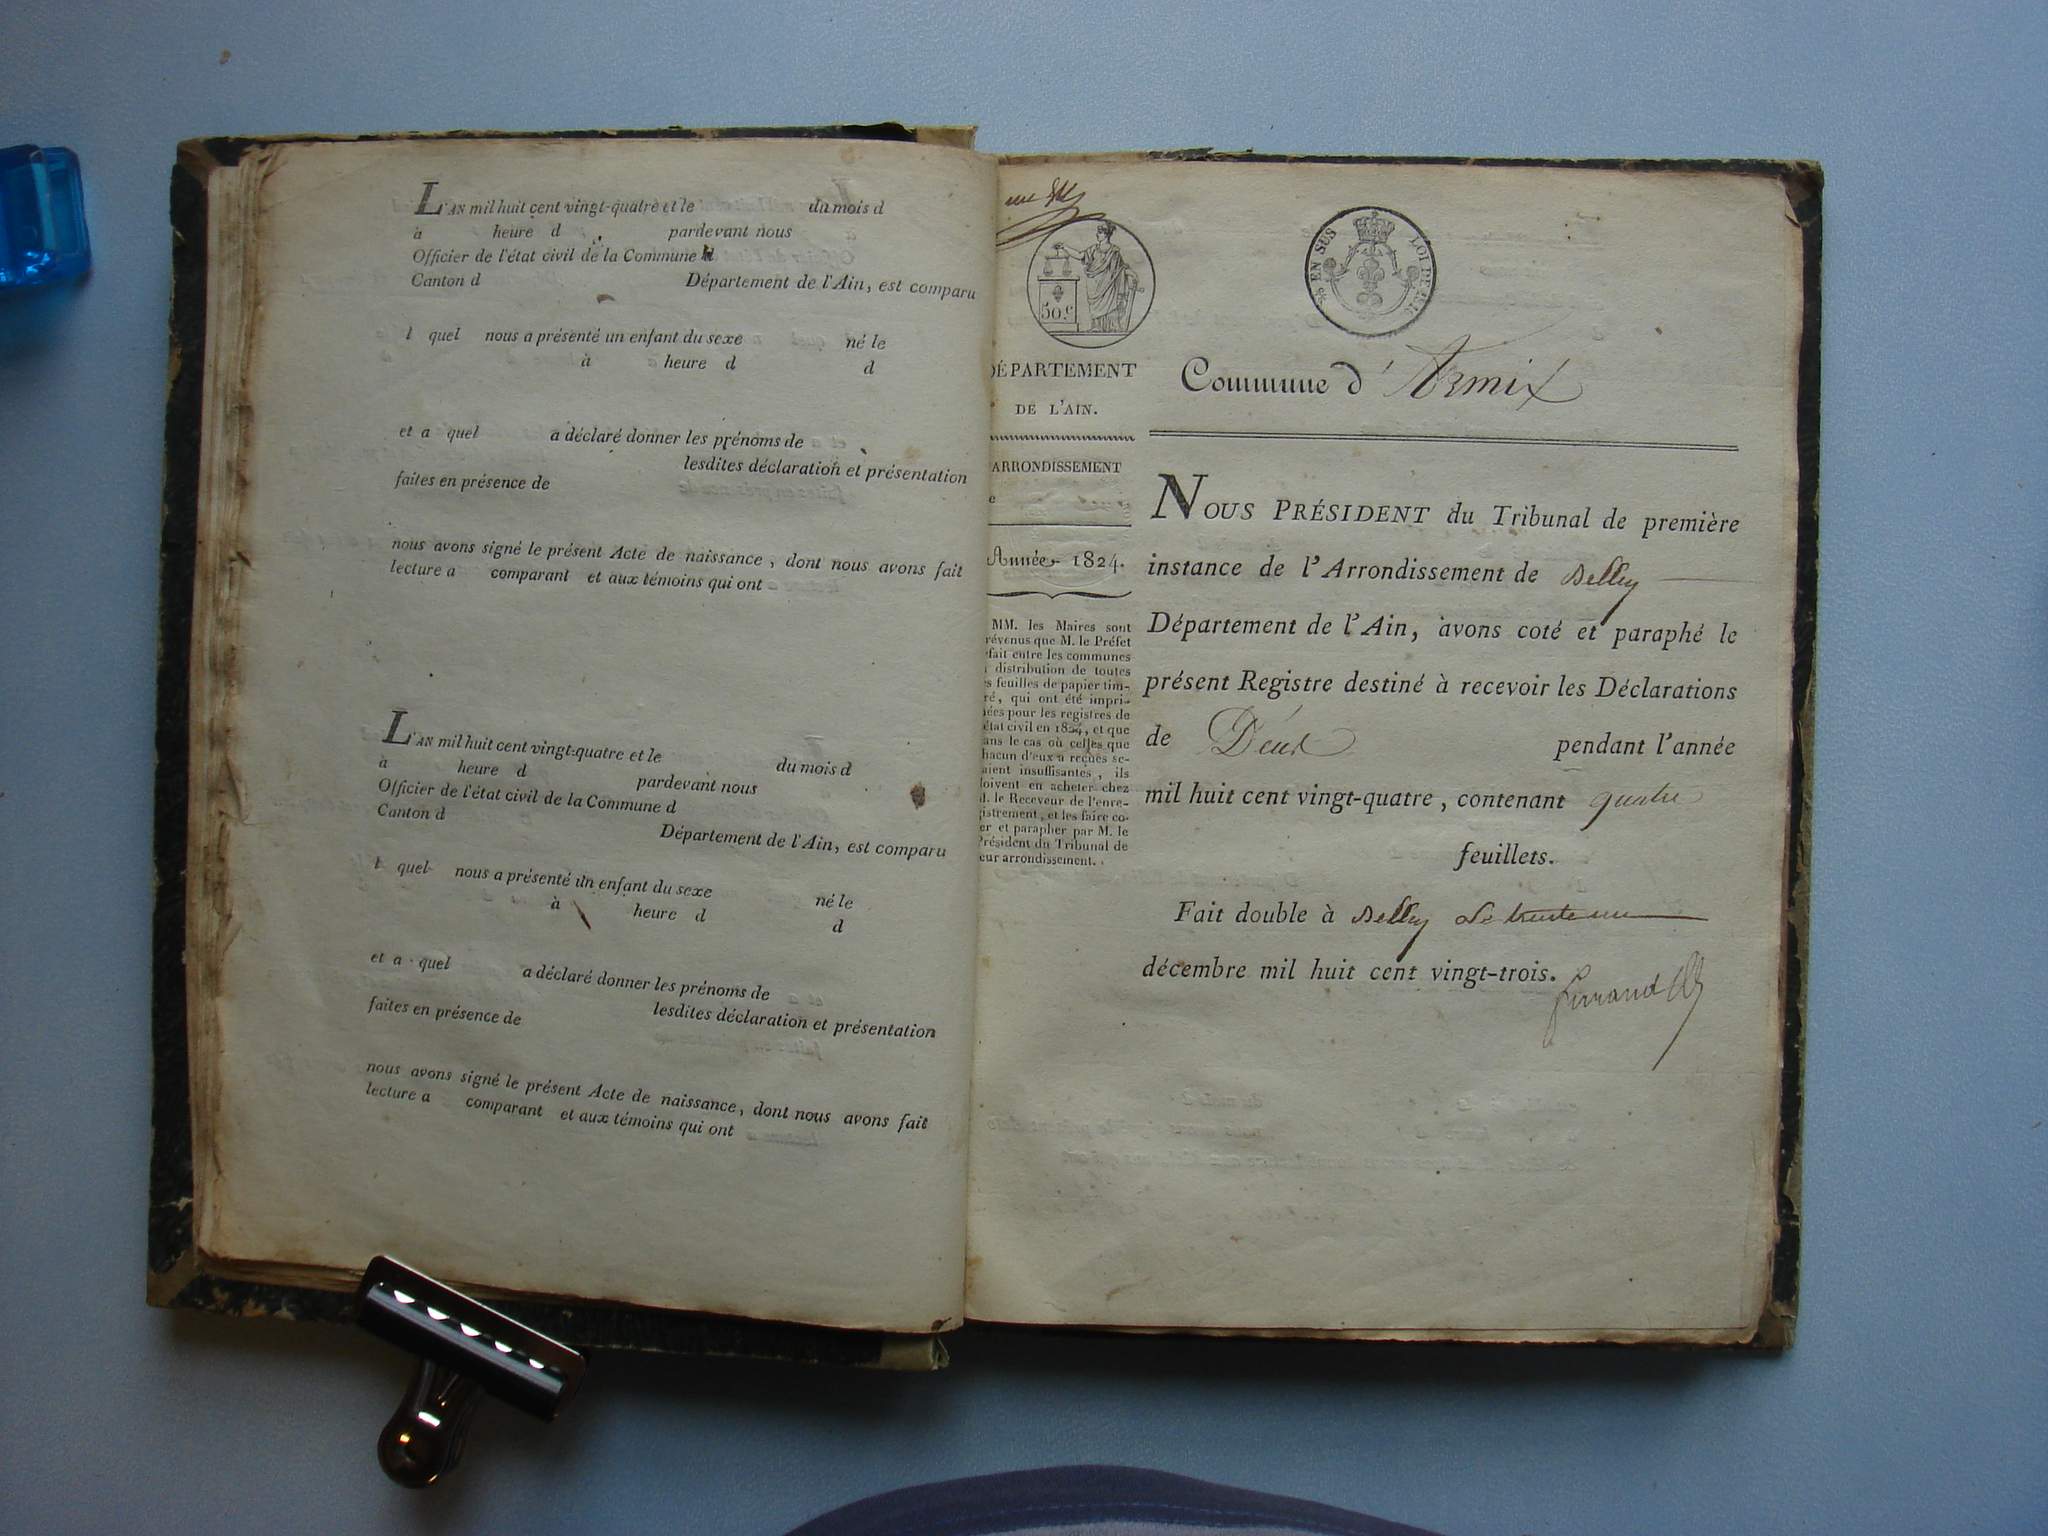 L'AN mil huit cent vingt-quatre et le du mois d
à heure d pardevant nous
Officier de l'état civil de la Commune d
Canton d Département de l'Ain, est comparu
l quel nous a présenté un enfant du sexe né le
à heure d d
et a quel a déclaré donner les prénoms de
lesdites déclaration et présentation
faites en présence de
nous avons signé le présent Acte de naissance, dont nous avons fait
lecture a comparant et aux témoins qui ont
L'AN mil huit cent vingt-quatre et le du mois d
à heure d pardevant nous
Officier de l'état civil de la Commune d
Canton d Département de l'Ain, est comparu
l quel nous a présenté un enfant du sexe né le
à heure d d
et a quel a déclaré donner les prénoms de
lesdites déclaration et présentation
faites en présence de
nous avons signé le présent Acte de naissance, dont nous avons fait
lecture a comparant et aux témoins qui ont
50.c
EN SUS LOI DE
DÉPARTEMENT
DE L'AIN.
ARRONDISSEMENT
e
Année 1824.
MM. les Maires sont
révenus que M. le Préfet
fait entre les communes
distribution de toutes
s feuilles de papier tim-
ré, qui ont été impri-
ées pour les registres de
état civil en 1824, et que
ans le cas où celles que
hacun d'eux a reçues se-
aient insuffisantes, ils
oivent en acheter chez
M. le Receveur de l'enre-
gistrement, et les faire co-
er et parapher par M. le
Président du Tribunal de
eur arrondissement.
Commune d'Armix
NOUS PRÉSIDENT du Tribunal de première
instance de l'Arrondissement de Belley
Département de l'Ain, avons coté et paraphé le
présent Registre destiné à recevoir les Déclarations
de Décès pendant l'année
mil huit cent vingt-quatre, contenant quatre
feuillets.
Fait double à Belley le trente un
décembre mil huit cent vingt-trois.